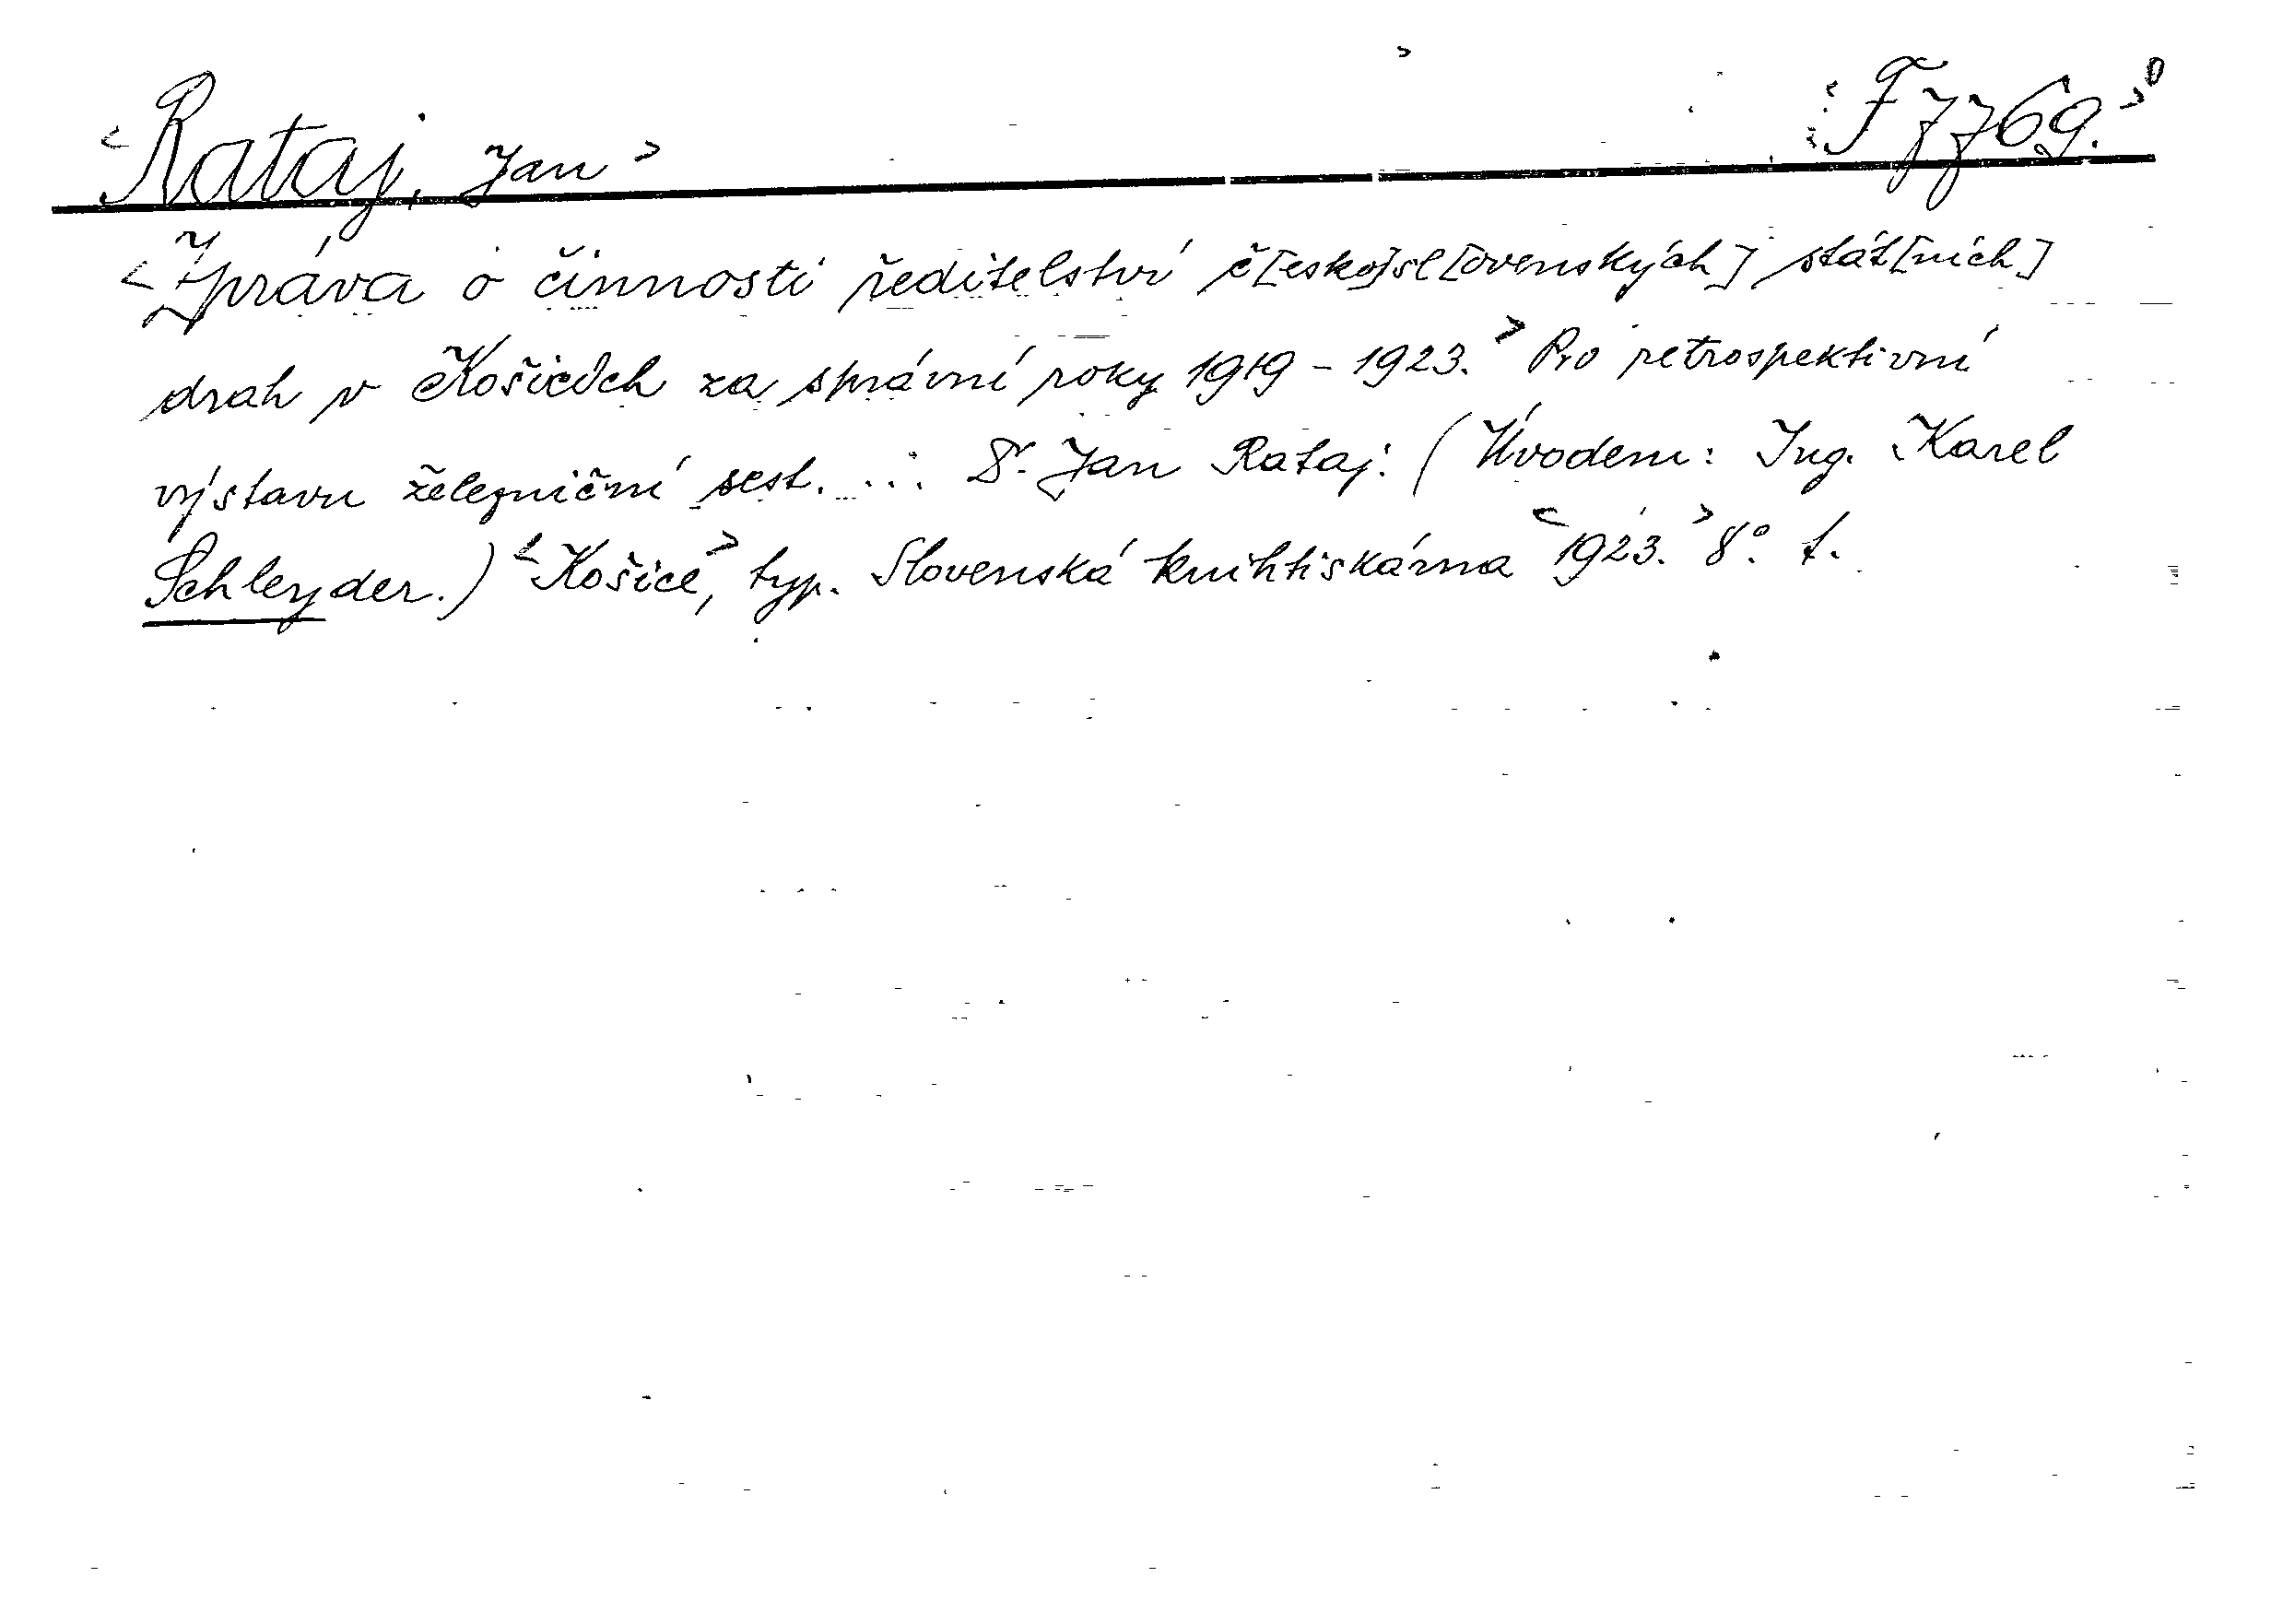 <Rataj, Jan> F 7769.
<Zpráva o činnosti ředitelství č[esko]sl[ovenských] stát[ních]
drah v Košicích za správní roky 1919 - 1923.> Pro retrospektivní
výstavu železniční sest. ... Dr. Jan Rataj. (Úvodem: Ing. Karel
Schleyder.) <Košice,> typ. Slovenská knihtiskárna <1923.> 8°. f.